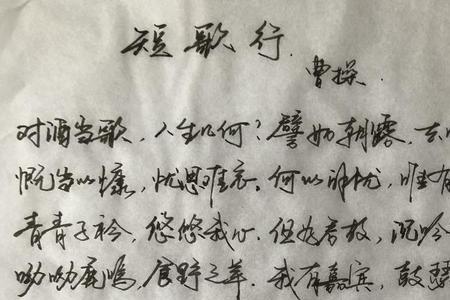 短歌行.
曹操.
对酒当歌，人生几何？譬如朝露，去
慨当以慷，忧思难忘。何以解忧，唯有
青青子衿，悠悠我心．但为君故，沉吟
呦呦鹿鸣，食野之苹．我有嘉宾，鼓瑟